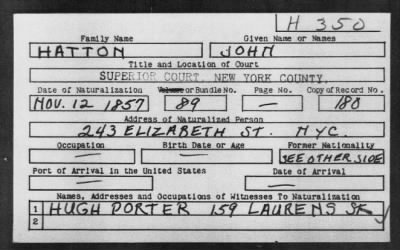 H 350
Family Name Given Name or Names
HATTON JOHN
Title and Location of Court
SUPERIOR COURT, NEW YORK COUNTY.
Date of Naturalization Volume or Bundle No. Page No. Copy of Record No.
NOV. 12 1857 89 — 180
Address of Naturalized Person
243 ELIZABETH ST. NYC.
Occupation Birth Date or Age Former Nationality
— — SEE OTHER SIDE
Port of Arrival in the United States Date of Arrival
— —
Names, Addresses and Occupations of Witnesses To Naturalization
1 HUGH PORTER 159 LAURENS St.
2